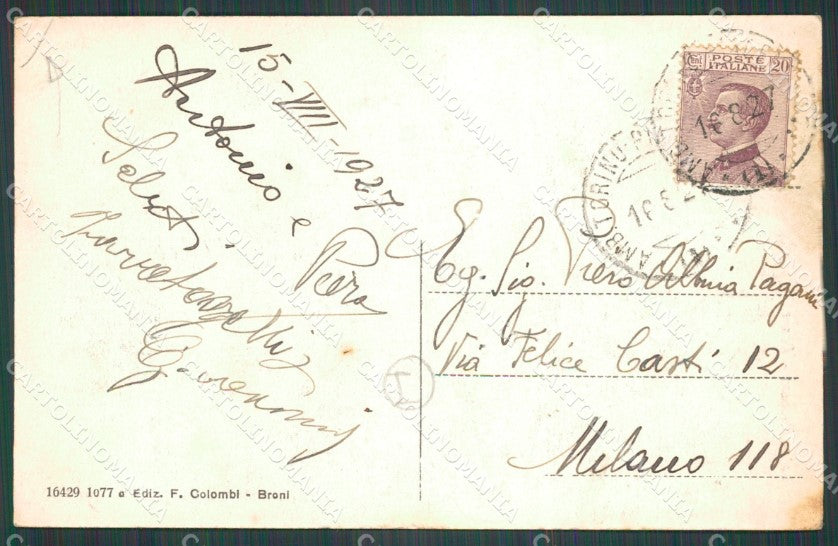 15-VIII-1927
Antonio e
Piera
Saluti
Giovanni
POSTE
ITALIANE
20
16.8.27
AMB. TORINO
Eg. Sig. Piero Albina Pagani
Via Felice Casti 12
Milano 118
16429 1077 a Ediz. F. Colombi - Broni
CARTOLINOMANIA